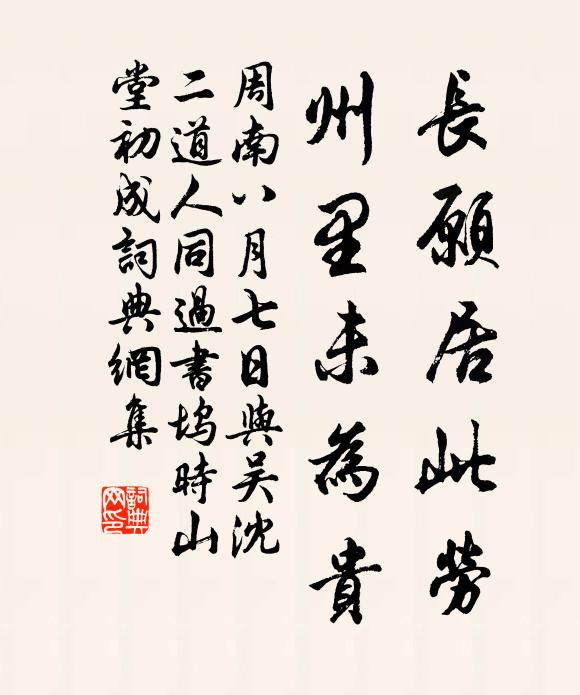 長願居此勞
州里未為貴
周南八月七日與吴沈
二道人同過書塢時山
堂初成詞典網集
詞典
网印